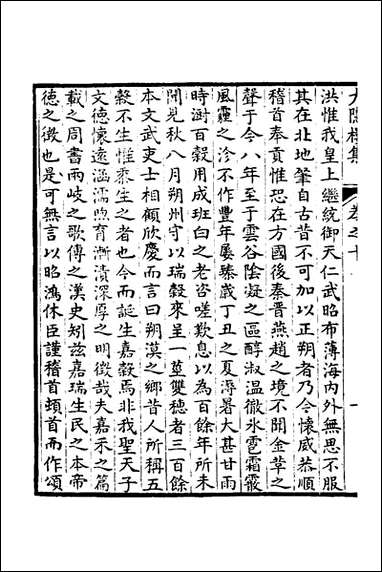 洪惟我皇上繼統御天仁武昭布薄海内外無思不服
其在北地肇自古昔不可加以正朔者乃今懷威恭順
稽首奉貢惟恐在方國後秦晉燕趙之境不聞金革之
聲于今八年至于雲谷陰凝之區醇淑温徹氷雹霜霰
風霾之沴不作豐年屢臻歲丁丑之夏溽暑大甚甘雨
時澍百穀用成班白之老咨嗟歎息以為百餘年所未
聞見秋八月朔州守以瑞穀來呈一莖雙穗者三百餘
本文武吏士相顧欣慶而言曰朔漠之鄉昔人所稱五
穀不生惟黍生之者也今而誕生嘉穀焉非我聖天子
文德懷遠涵濡煦育漸漬深厚之明徵哉夫嘉禾之篇
載之周書兩岐之歌傳之漢史矧茲嘉瑞生民之本帝
德之徵也是可無言以昭鴻休臣謹稽首頓首而作頌